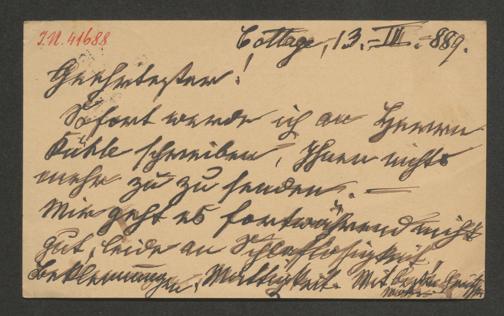 I.N. 41688
Cottage, 13.-III.-889.
Geehrtester!
Sofort werde ich an Herrn
Kühle schreiben, Ihnen nichts
mehr zu zu senden. —
Mir geht es fortwährend nicht
gut, leide an Schlaflosigkeit,
Beklemmungen, Mattigkeit. Mit